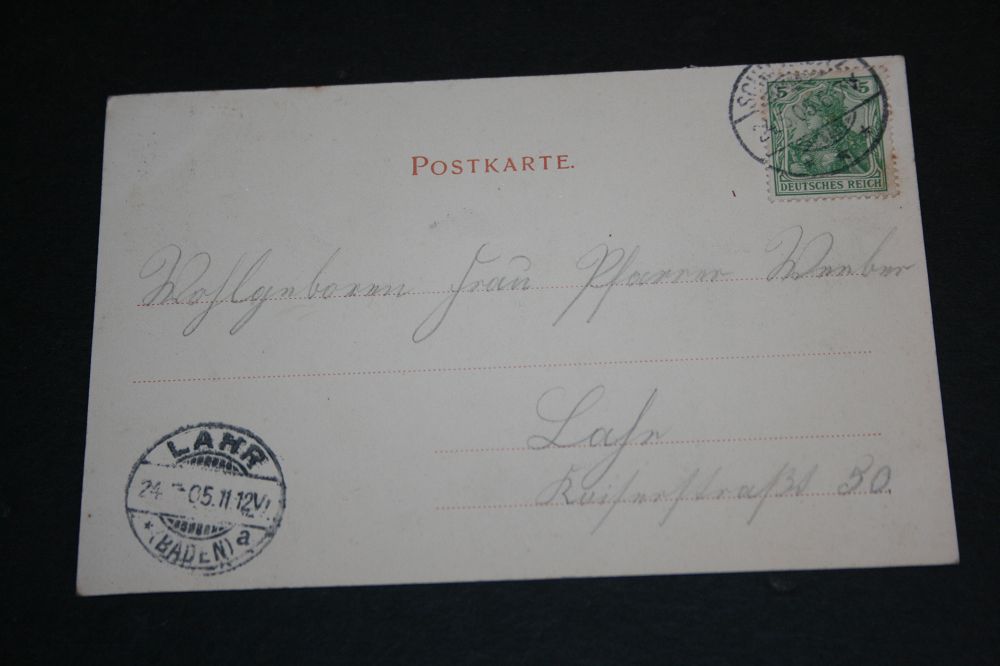 5 5
DEUTSCHES REICH
POSTKARTE.
Wohlgeboren Frau Pfarrer Weeber
Lahr
Kaiserstraße 30.
LAHR
24. 05.11-12V.
* (BADEN) a